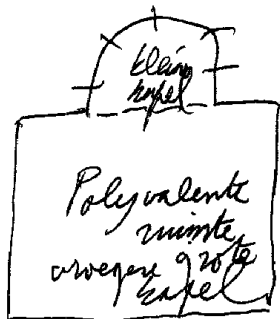 klein
kapel
Polyvalente
ruimte,
vroegere grote
kapel